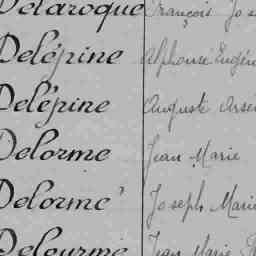 Delaroque François Jos
Delépine Alphonse Eugén
Delépine Auguste Arsè
Delorme Jean Marie
Delorme Joseph Marie
Delourme Jean Marie